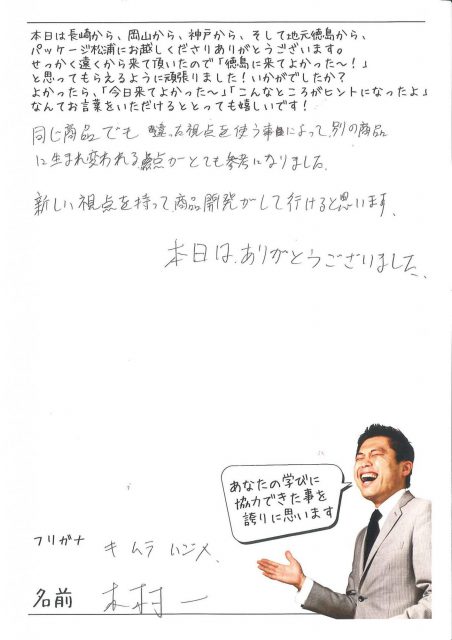 本日は長崎から、岡山から、神戸から、そして地元徳島から、
パッケージ松浦にお越しくださりありがとうございます。
せっかく遠くから来て頂いたので「徳島に来てよかった～！」
と思ってもらえるように頑張りました！いかがでしたか？
よかったら、「今日来てよかった～」「こんなところがヒントになったよ」
なんてお言葉をいただけるととっても嬉しいです！
同じ商品でも違った視点を使う事によって、別の商品
に生まれ変われる点がとても参考になりました。
新しい視点を持って、商品開発がして行けると思います。
本日は、ありがとうございました。
あなたの学びに
協力できた事を
誇りに思います
フリガナ キムラ ハジメ
名前 木村 一